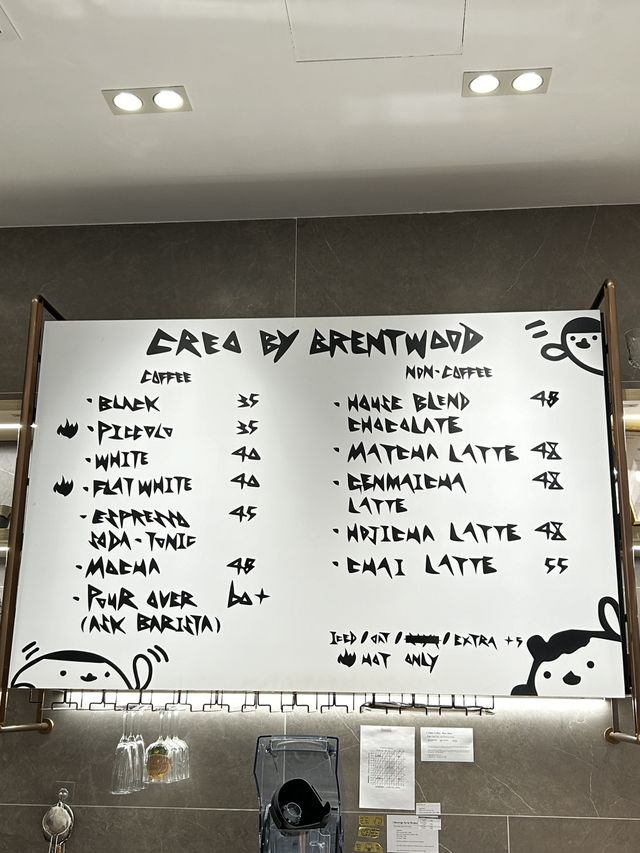 CREO BY BRENTWOOD
COFFEE
· BLACK 35
· PICCOLO 35
· WHITE 40
· FLAT WHITE 40
· ESPRESSO 45
SODA - TONIC
· MOCHA 48
· POUR OVER 60+
(ASK BARISTA)
NON-COFFEE
· HOUSE BLEND 48
CHOCOLATE
· MATCHA LATTE 48
· GENMAICHA 48
LATTE
· HOJICHA LATTE 48
· CHAI LATTE 55
ICED / OAT / / EXTRA +5
HOT ONLY